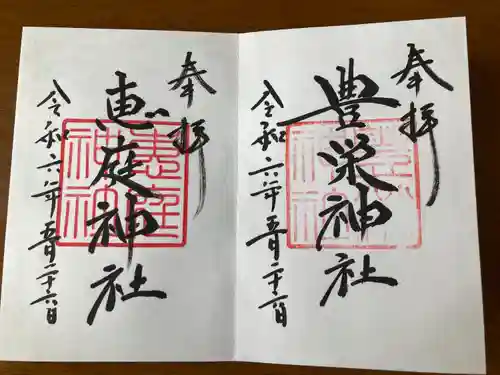 奉拝
豊栄神社
令和六年五月二十六日
奉拝
恵庭神社
令和六年五月二十六日
恵庭神社